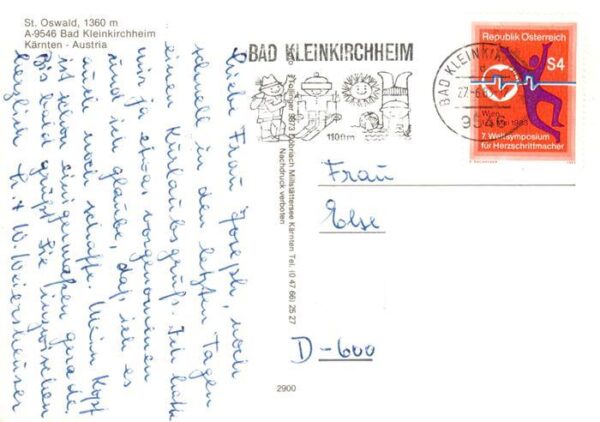 St. Oswald, 1360 m
A-9546 Bad Kleinkirchheim
Kärnten - Austria
Liebe Frau Joseph, noch
schnell in den letzten Tagen
einen Kurlaubsgruß. Ich hatte
mir ja etwas vorgenommen
und ich glaube, daß ich es
auch noch schaffe. Mein Kopf
ist schon einigermaßen gerade.
Bis bald grüßt Sie inzwischen
herzlich
H. + W. Weiershäuser
BAD KLEINKIRCHHEIM
1100m
BAD KLEINKIRCH
9546
Republik Österreich
S4
Wien
Mai 1983
7. Weltsymposium
für Herzschrittmacher
Döbriach Millstättersee Kärnten Tel. (0 47 66) 25 27
Nachdruck verboten
Frau
Else
D-600
2900